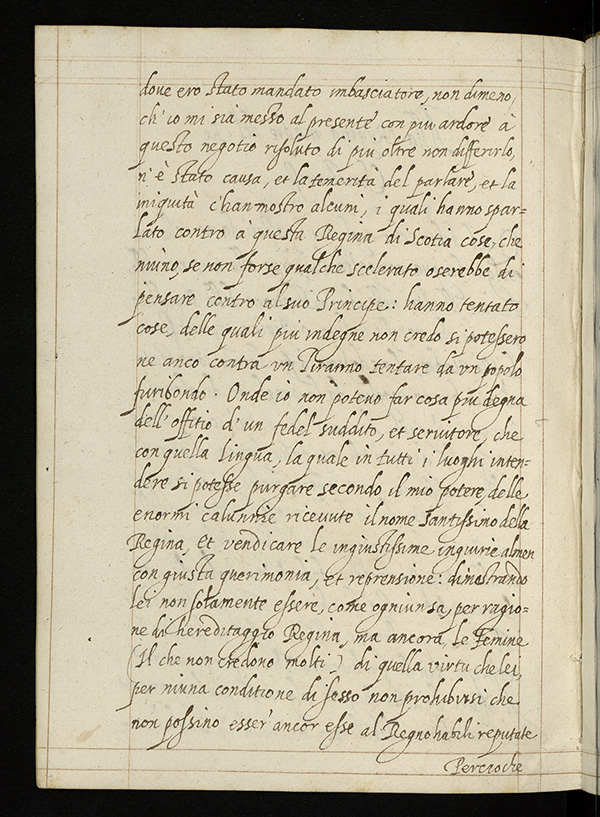 dove ero stato mandato imbasciatore, non dimeno,
ch'io mi sia messo al presente con piu ardore à
questo negotio risoluto di piu oltre non differirlo,
n'è stato causa, et la temerità del parlare, et la
iniquità c'han mostro alcuni, i quali hanno spar=
lato contro à questa Regina di Scotia cose, che
niuno, se non forse qualche scelerato oserebbe di
pensare contro al suo Principe: hanno tentato
cose, delle quali piu indegne non credo si potessero
ne anco contra un Tiranno tentare da un popolo
furibondo. Onde io non potevo far cosa piu degna
dell'offitio d'un fedel suddito, et servitore, che
con quella lingua, la quale in tutti i luoghi inten=
dere si potesse purgare secondo il mio potere, delle
enormi calunnie ricevute il nome santissimo della
Regina, et vendicare le ingiustissime ingiurie almen
con giusta querimonia, et reprensione: dimostrando
lei non solamente essere, come ogniun sa, per ragio=
ne di hereditaggio Regina, ma ancora, le Femine
(Il che non credono molti) di quella virtu che lei,
per niuna conditione di sesso non prohibirsi che
non possino esser ancor esse al Regno habili reputate
Percioche